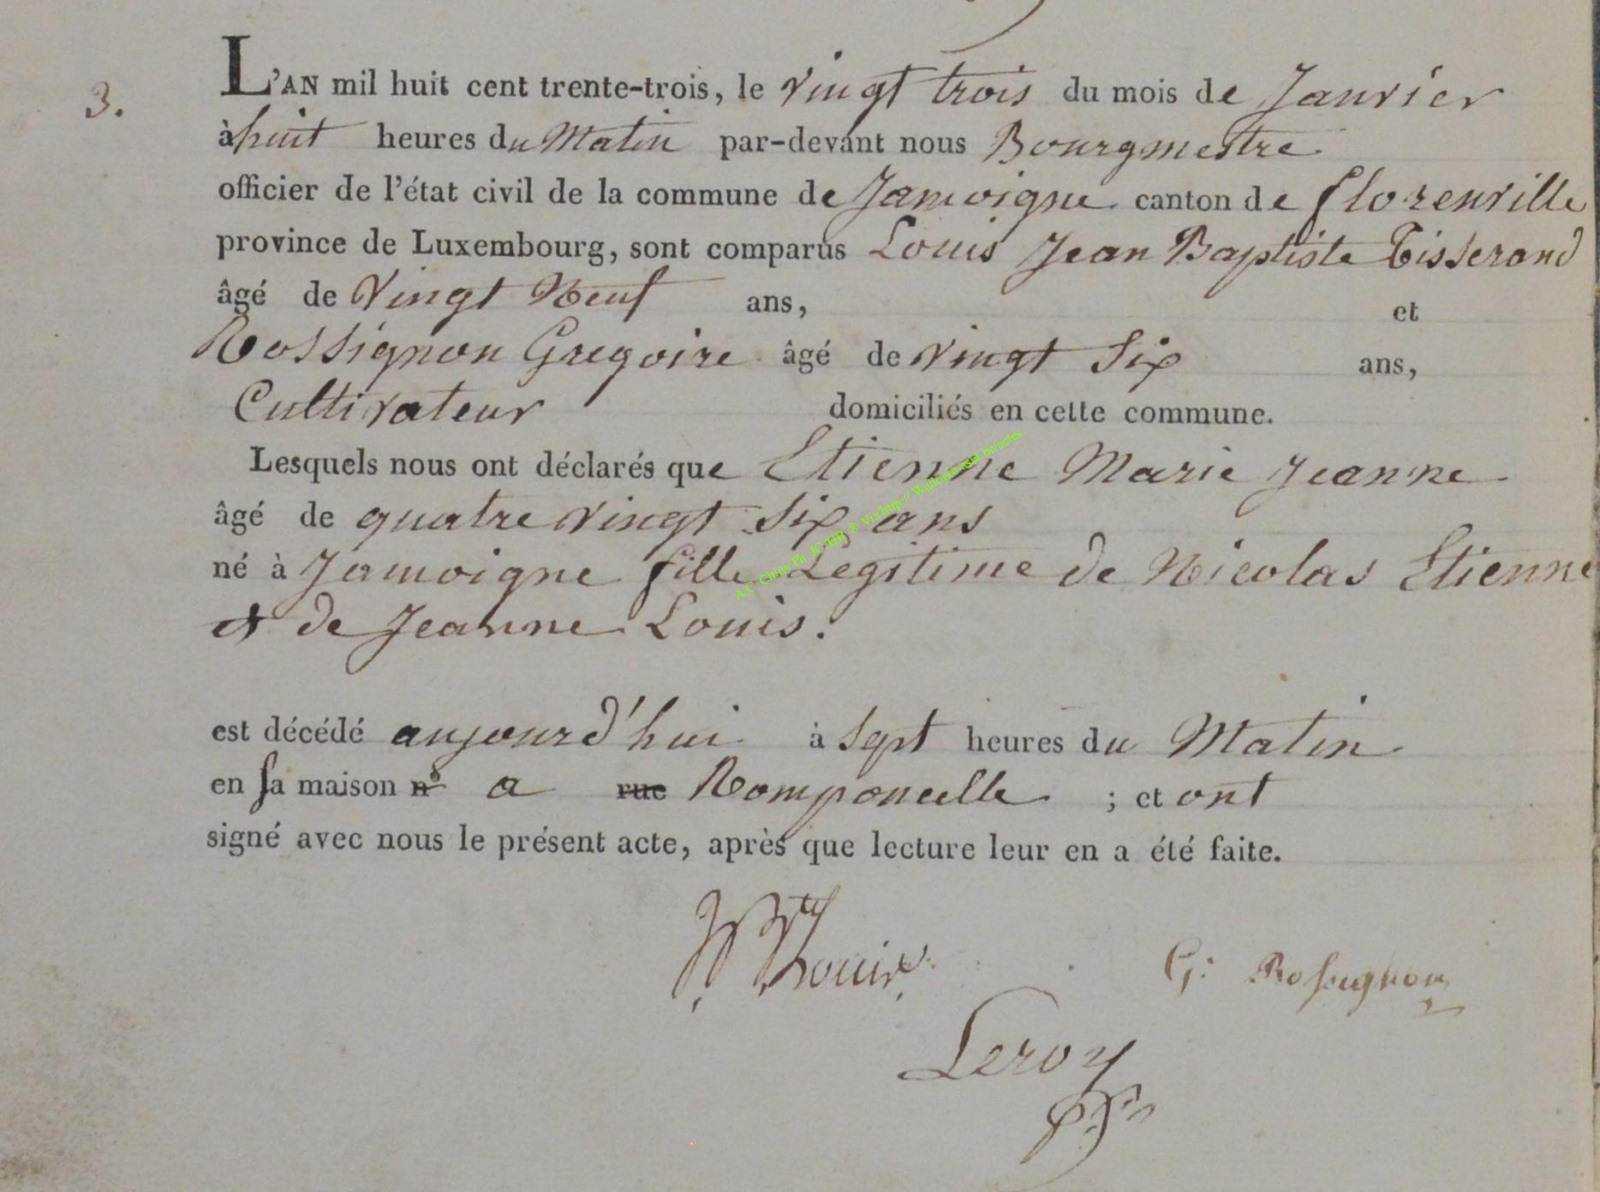 3.
L'AN mil huit cent trente-trois, le vingt trois du mois de Janvier
à huit heures du Matin par-devant nous Bourgmestre
officier de l'état civil de la commune de Jamoigne canton de florenville
province de Luxembourg, sont comparus Louis Jean Baptiste Tisserand
âgé de Vingt Neuf ans, et
Rossignon Gregoire âgé de vingt Six ans,
Cultivateur domiciliés en cette commune.
Lesquels nous ont déclarés que Etienne Marie Jeanne
âgé de quatre vingt Six ans
né à Jamoigne fille Legitime de Nicolas Etienne
et de Jeanne Louis.
est décédé aujourd'hui à Sept heures du Matin
en sa maison n° a rue Romponcelle ; et ont
signé avec nous le présent acte, après que lecture leur en a été faite.
Louis G: Rossignon
Leroy